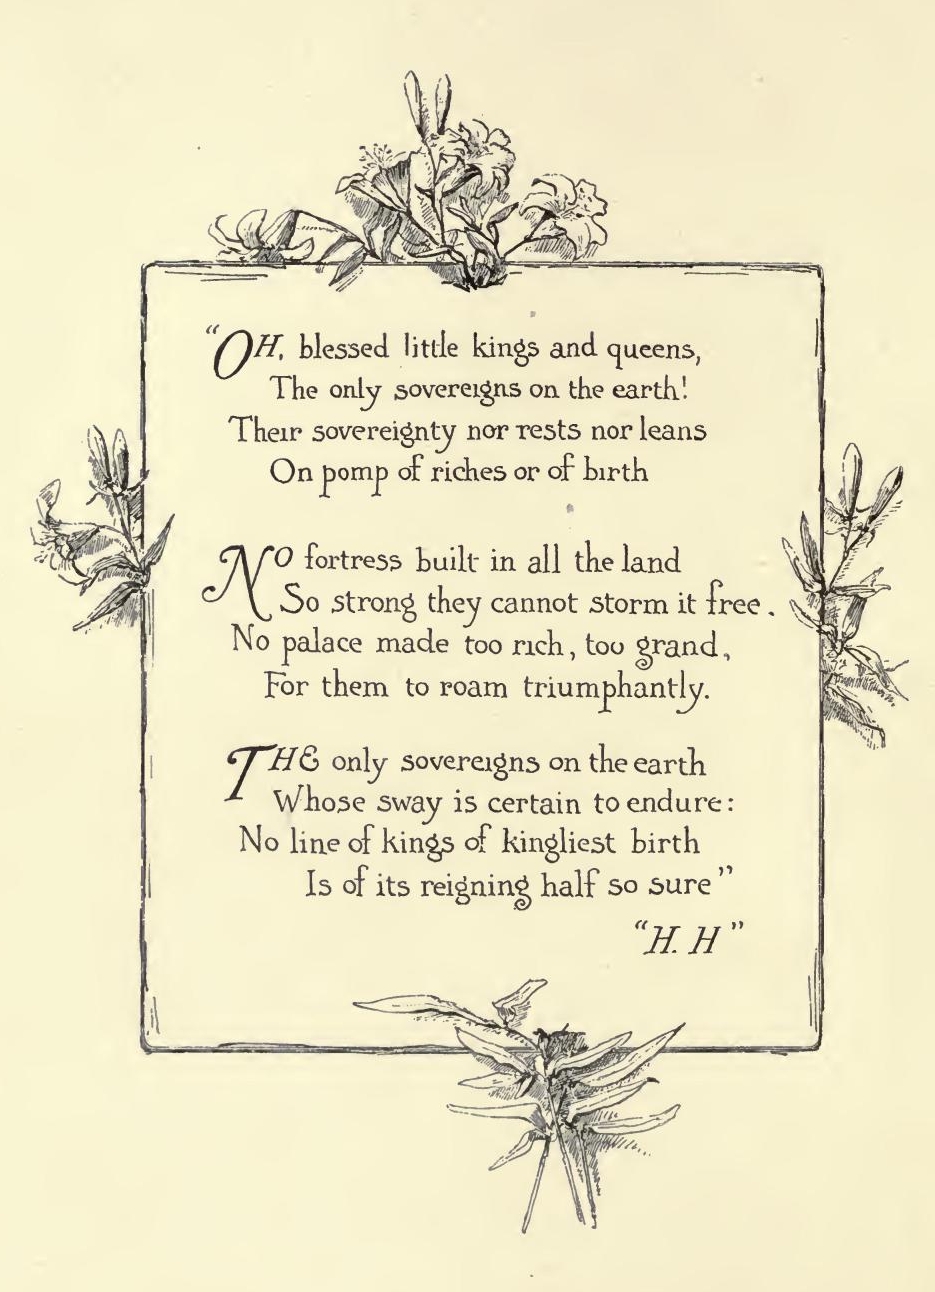 “OH, blessed little kings and queens,
The only sovereigns on the earth!
Their sovereignty nor rests nor leans
On pomp of riches or of birth
NO fortress built in all the land
So strong they cannot storm it free.
No palace made too rich, too grand,
For them to roam triumphantly.
THE only sovereigns on the earth
Whose sway is certain to endure:
No line of kings of kingliest birth
Is of its reigning half so sure”
“H. H”